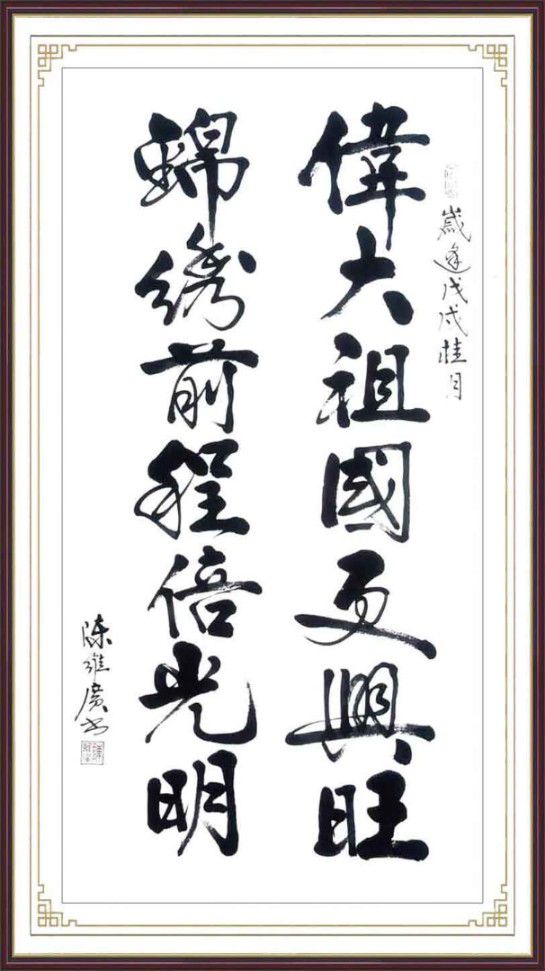 歲逢戊戌桂月
偉大祖國更興旺
錦綉前程倍光明
陈維廣书